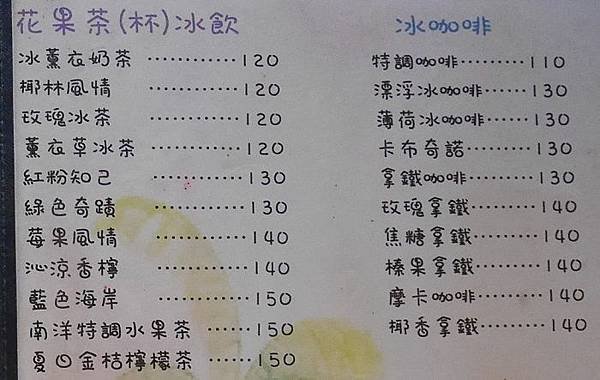 花果茶(杯)冰飲
冰薰衣奶茶 …………120
椰林風情 …………120
玫瑰冰茶 …………120
薰衣草冰茶 …………120
紅粉知己 …………130
綠色奇蹟 …………130
莓果風情 …………140
沁涼香檸 …………140
藍色海岸 …………150
南洋特調水果茶 ……150
夏日金桔檸檬茶 ……150
冰咖啡
特調咖啡………110
漂浮冰咖啡……130
薄荷冰咖啡……130
卡布奇諾………130
拿鐵咖啡………130
玫瑰拿鐵………140
焦糖拿鐵………140
榛果拿鐵………140
摩卡咖啡………140
椰香拿鐵………140